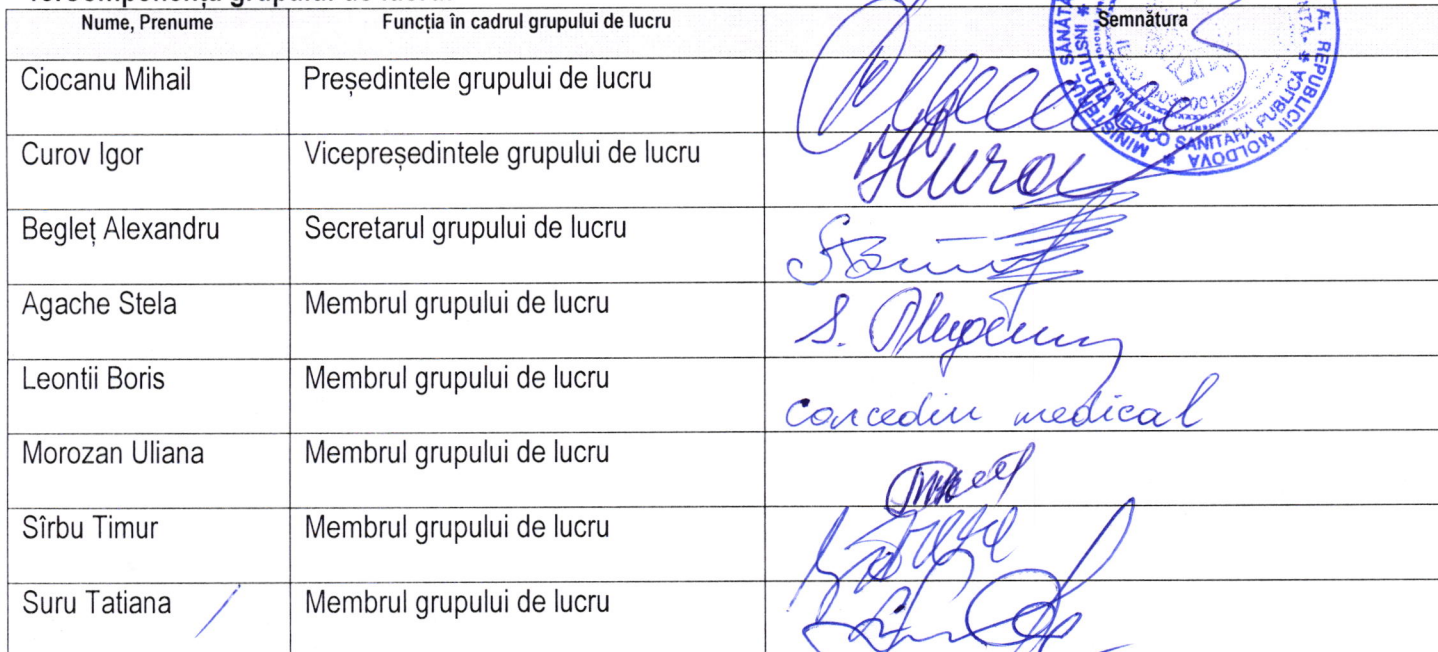 Componența grupului de lucru
Nume, Prenume Funcția în cadrul grupului de lucru Semnătura
Ciocanu Mihail Președintele grupului de lucru
Curov Igor Vicepreședintele grupului de lucru
Begleț Alexandru Secretarul grupului de lucru
Agache Stela Membrul grupului de lucru S.
Leontii Boris Membrul grupului de lucru concediu medical
Morozan Uliana Membrul grupului de lucru
Sîrbu Timur Membrul grupului de lucru
Suru Tatiana Membrul grupului de lucru
MINISTERUL SĂNĂTĂ AL REPUBLICII MOLDOVA
INSTITUȚIA MEDICO SANITARĂ PUBLICĂ